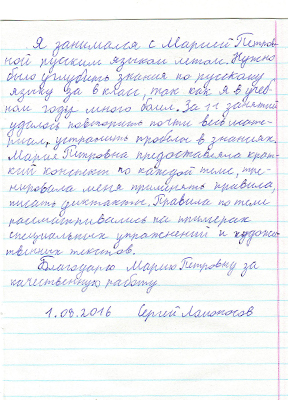 Я занимался с Марией Петров-
ной русским языком летом. Нужно
было углубить знания по русскому
языку за 6 класс, так как я в учеб-
ном году много болел. За 11 занятий
удалось повторить почти весь мате-
риал, устранить пробелы в знаниях.
Мария Петровна предоставляла крат-
кий конспект по каждой теме, тре-
нировала меня применять правила,
писать диктанты. Правила по теме
рассматривались на примерах
специальных упражнений и художе-
ственных текстов.
Благодарю Марию Петровну за
качественную работу
1.09.2016 Сергей